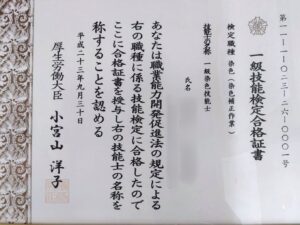 第一一-一-一〇二三-二六-〇〇〇一号
一級技能検定合格証書
検定職種 染色(染色補正作業)
技能士の称 一級染色技能士
氏名
あなたは職業能力開発促進法の規定による
右の職種に係る技能検定に合格したので
ここに合格証書を授与し右の技能士の名称を
称することを認める
平成二十三年九月三十日
厚生労働大臣 小宮山洋子